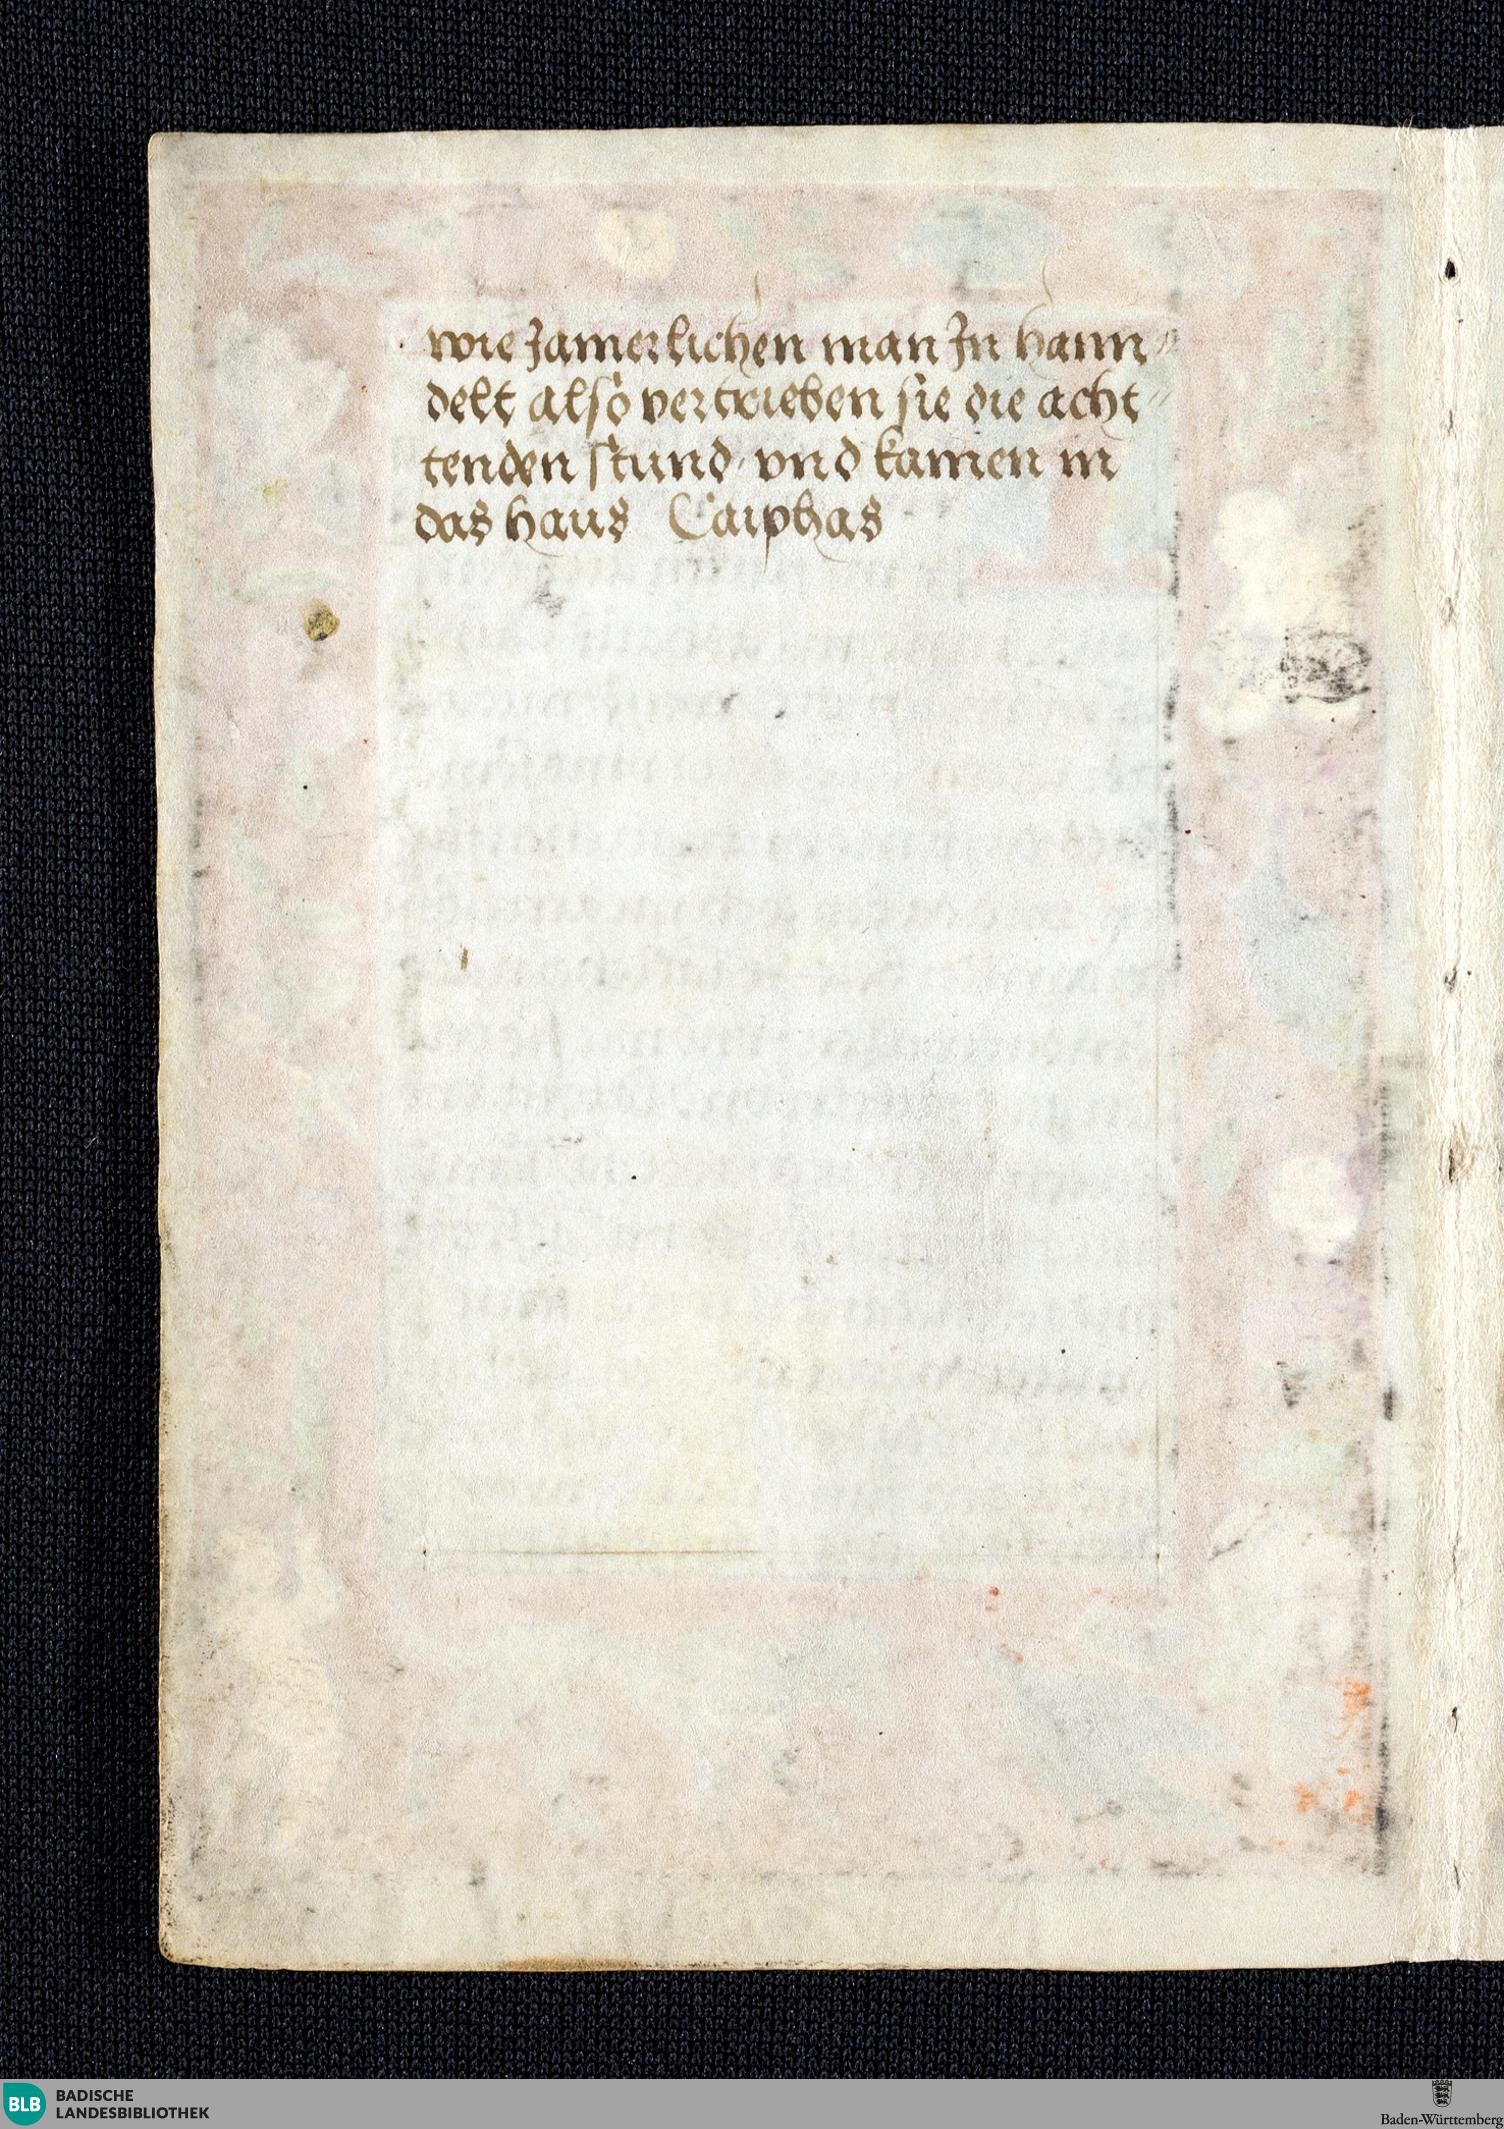 wie Jamerlichen man Jn hann〃
delt also vertrieben sie die acht〃
tenden stund, vnd kamen in
das haus Caiphas
BLB BADISCHE
LANDESBIBLIOTHEK
Baden-Württemberg